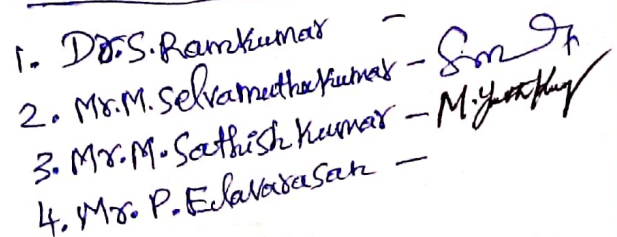 1. Dr.S.Ramkumar -
2. Mr.M.Selvamuthukumar -
3. Mr.M.Sathish Kumar -
4. Mr. P.Elavarasan -